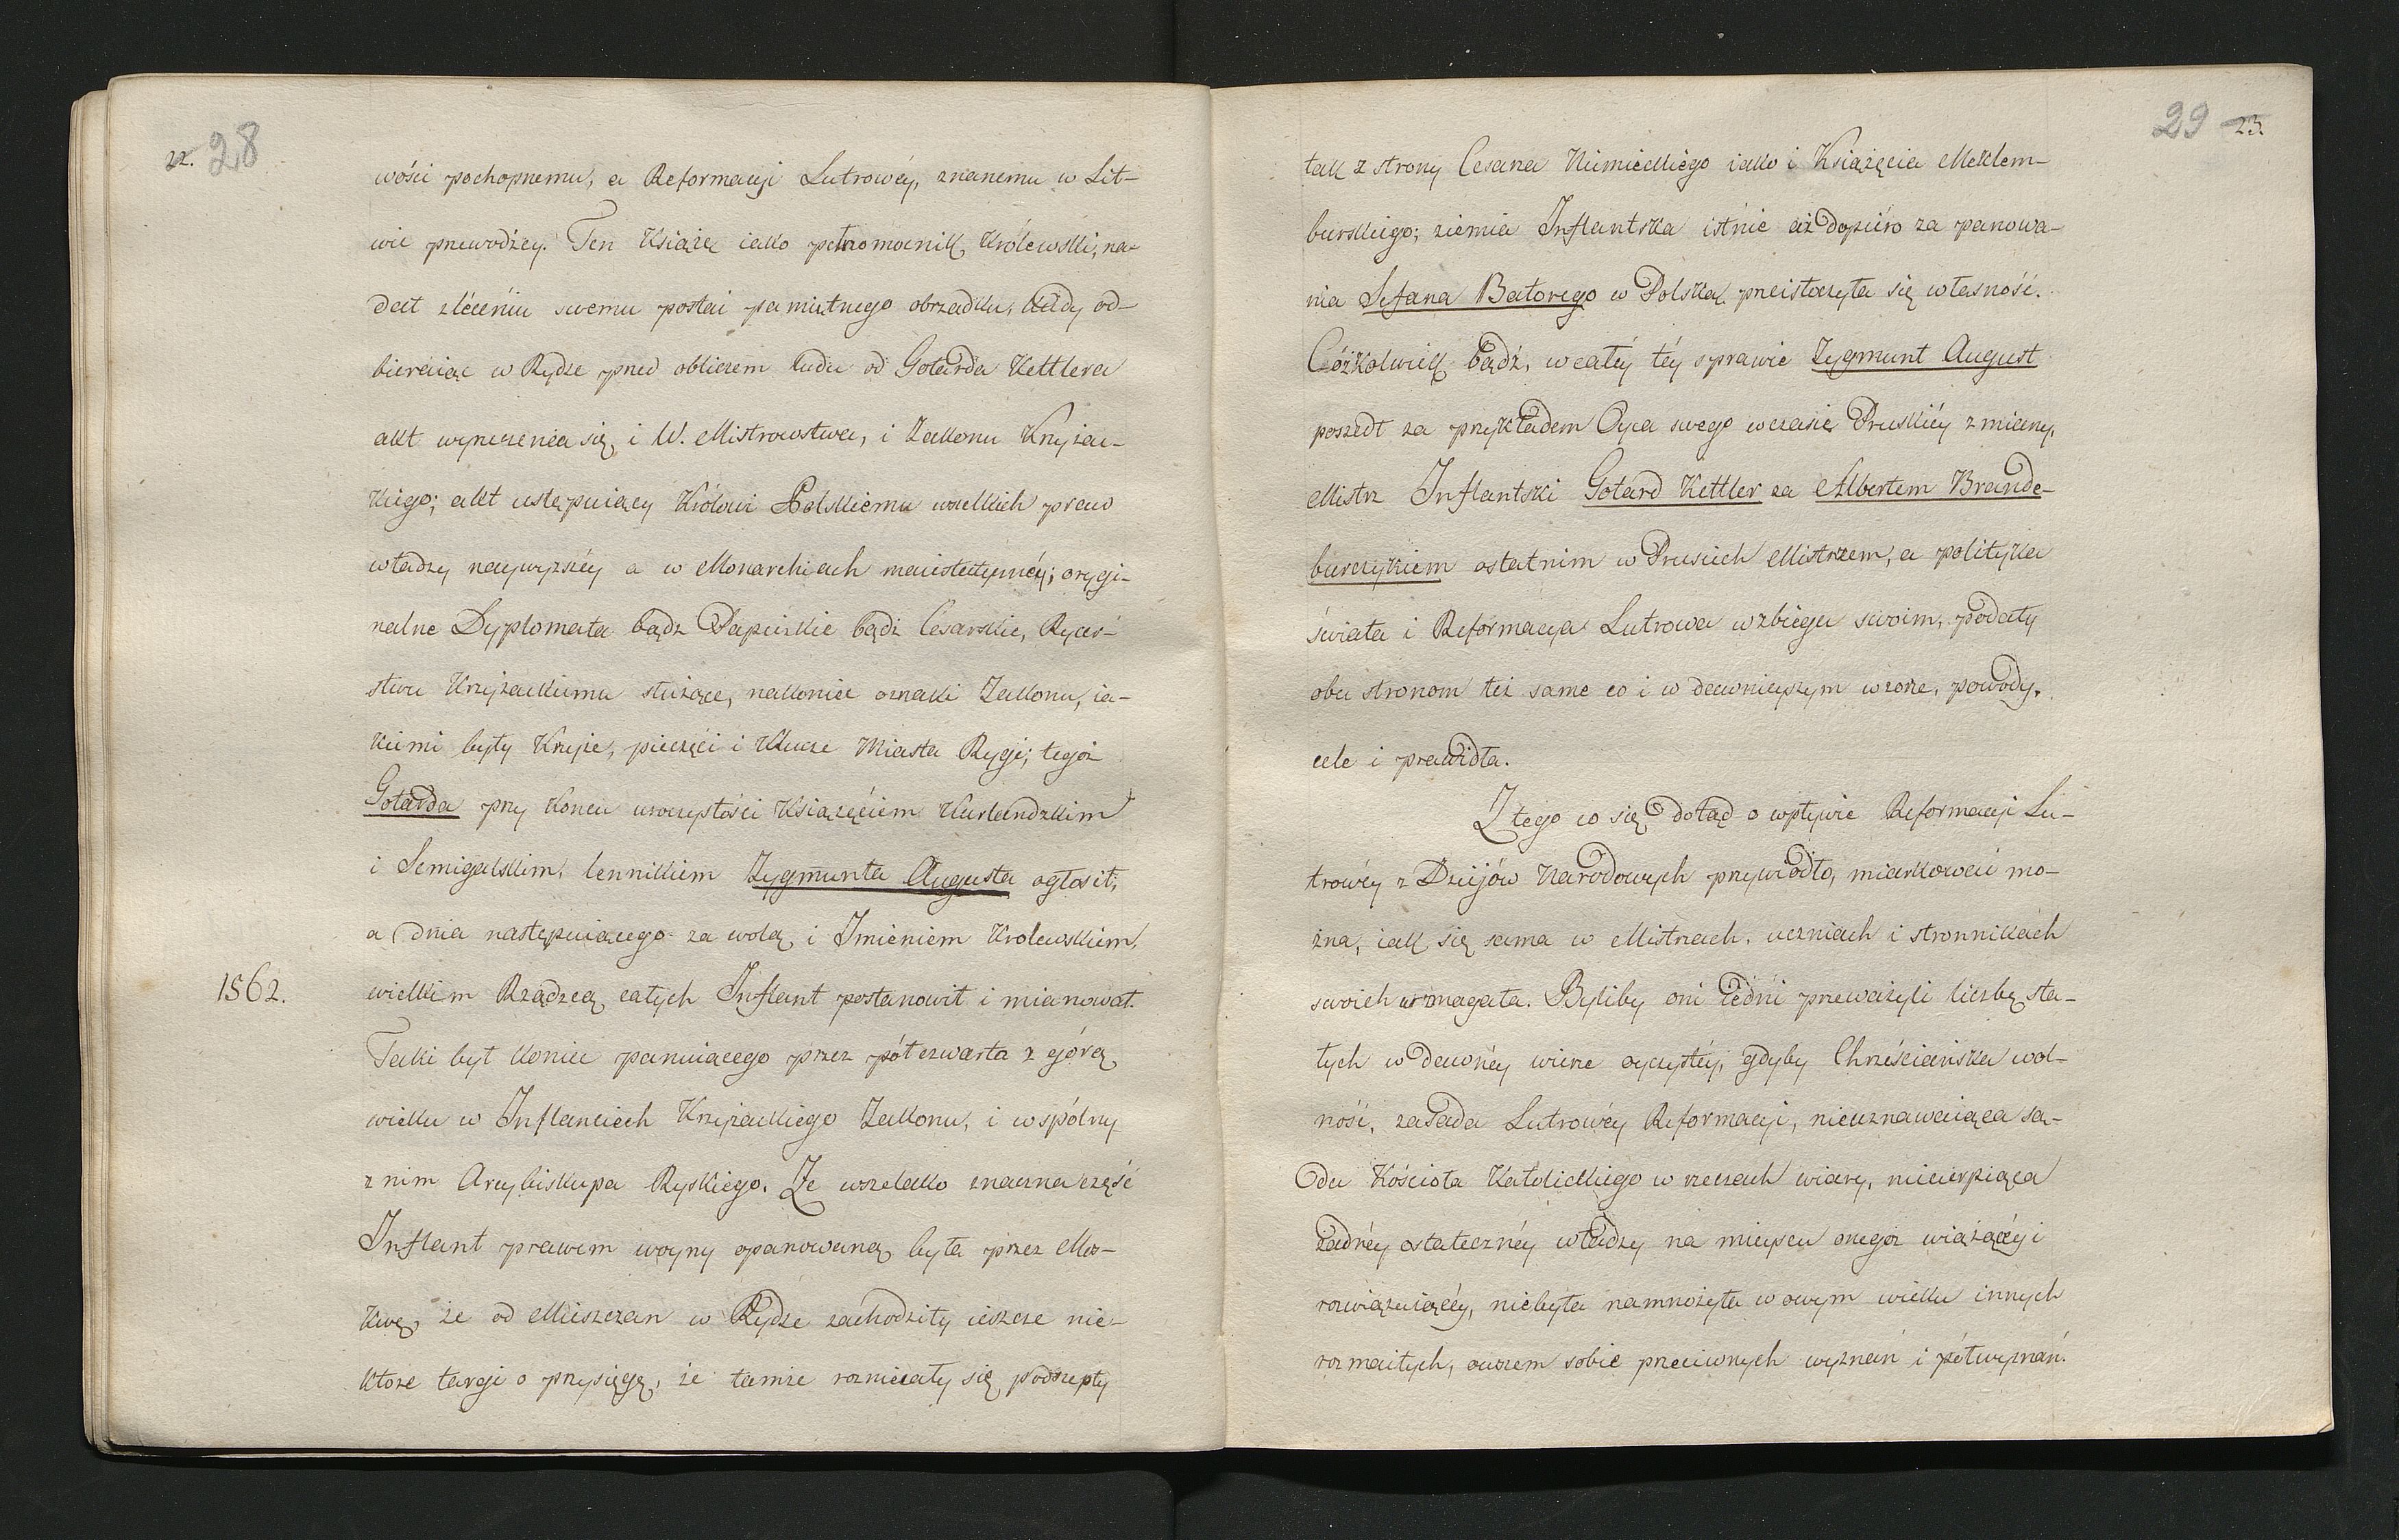 22. 28
wości pochopnemu, a Reformacyi Lutrowéy, znanemu w Lit-
wie przewodzcy. Ten Książe iako pełnomocnik Królewski, na-
dał zléceniu swemu postać pamiętnego obrządku, kiédy od-
bieraiąc w Rydze przed obliczem ludu od Gotarda Kettlera
akt wyrzeczenia się i W. Mistrzowstwa, i Zakonu Krzyżac-
kiego; akt ustępuiący Królowi Polskiemu wszelkich praw
władzy naywyższéy a w Monarchiach maiestatycznéy; orygi-
nalne Dyplomata bądz Papiezkie bądź Césarskie, Rycer-
stwu Krzyżackiemu służące, nakoniec oznaki Zakonu, ia-
kiemi były Krzyże, pieczęci i Klucze Miasta Rygi; tegoż
Gotarda przy końcu uroczystości Książęciem Kurlandzkim
i Semigalskim, lennikiem Zygmunta Augusta ogłosił,
a dnia następuiącego za wolą i Imieniem Krolewskiem,
1562. wielkim Rządzcą całych Inflant postanowił i mianował.
Taki był koniec panuiącego przez półczwarta z górą
wieku w Inflanciech Krzyżackiego Zakonu, i wspólny
z nim Arcybiskupa Ryskiego. Że wszelako znaczna część
Inflant prawem woyny opanowaną była przez Mos-
kwę, że od Mieszczan w Rydze zachodziły ieszcze nie-
które targi o przysięgę, że tamże rozniecały się podszepty
29 23.
tak z strony Cesarza Niemieckiego iako i Książęcia Meklem-
burskiego; ziemia Inflantska istnie aż dopiéro za panowa-
nia Stefana Batorego w Polską przeistoczyła się własność.
Cóżkolwiek bądź, w całéy téy sprawie Zygmunt August
poszedł za przykładem Oyca swego w czasie Pruskiéy zmiany,
Mistrz Inflantski Gotard Kettler za Albertem Brande-
burczykiem ostatnim w Prusiech Mistrzem, a polityka
świata i Reformacya Lutrowa w zbiegu swoim, podały
obu stronom też same co i w dawnieyszym wzorze, powody,
cele i prawidła.
Z tego co się dotąd o wpływie Reformacyi Lu-
trowéy z Dziejów Narodowych przywiodło, miarkować mo-
żna, iak się sama w Mistrzach, uczniach i stronnikach
swoich wzmagała. Byliby oni iedni przeważyli liczbę sta-
łych w dawnéy wierze oyczystéy, gdyby Chrześciańska wol-
ność, zasada Lutrowéy Reformacyi, nieuznawaiąca są-
du Kościoła Katolickiego w rzeczach wiary, niecierpiąca
żadnéy ostatecznéy władzy na mieyscu onegoż wiążącéy i
rozwiązuiącéy, niebyła namnożyła w owym wieku innych
rozmaitych, owszem sobie przeciwnych wyznań i półwyznań.